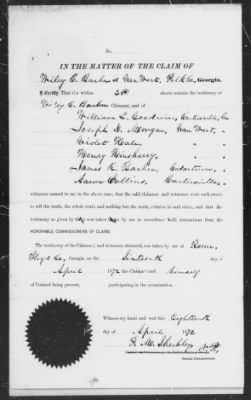 No.
IN THE MATTER OF THE CLAIM OF
Wiley C. Barber of Van Wert, Polk Co, Georgia,
I Certify That the within 26 sheets contain the testimony of
Wiley C. Barber Claimant, and of
William L. Goodwin, Cartersville, Ga
Joseph D. Morgan, Van Wert, "
Violet Heale, " "
Henry " "
James R. Barber, "
Aaron Collins, Cartersville, "
witnesses named to me in the
to tell the truth, the whole truth and nothing but the truth, relative to said claim, and that the
testimony as given by was by me in accordance with instructions from the
HONORABLE COMMISSIONERS OF CLAIMS.
The testimony of the Claimant, and witnesses aforesaid, was taken by me at Rome,
Floyd Co, Georgia, on the Sixteenth day of
April 1872 the Claimant and himself
of Counsel being present, participating in the examination.
Witness my hand and seal this Eighteenth
day of April 1872
Special Commissioner.